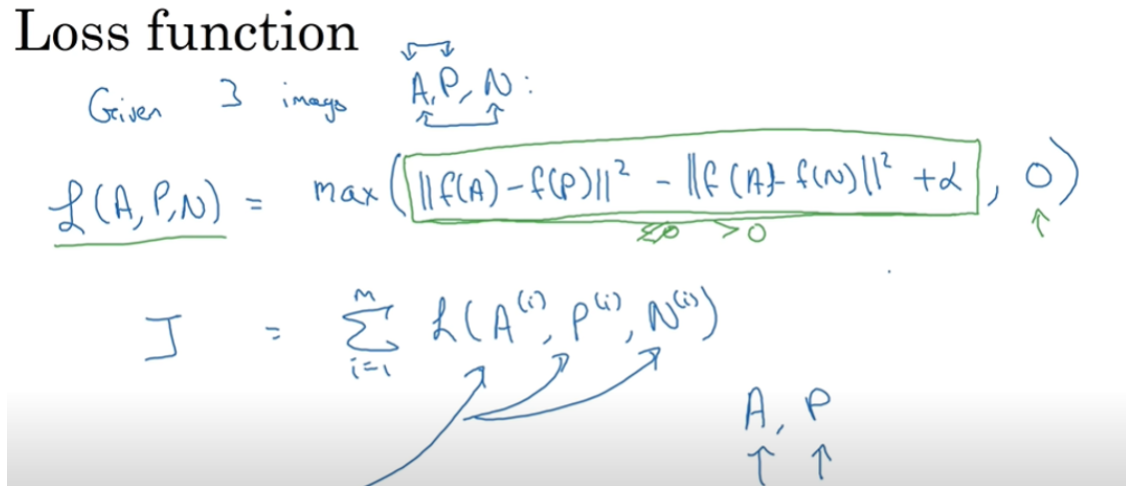 Loss function
Given 3 images A, P, N:
ℒ(A, P, N) = max(‖f(A) - f(P)‖² - ‖f(A) - f(N)‖² + α, 0)
≤0 >0
J = Σᵢ₌₁ᵐ ℒ(A⁽ⁱ⁾, P⁽ⁱ⁾, N⁽ⁱ⁾)
A, P